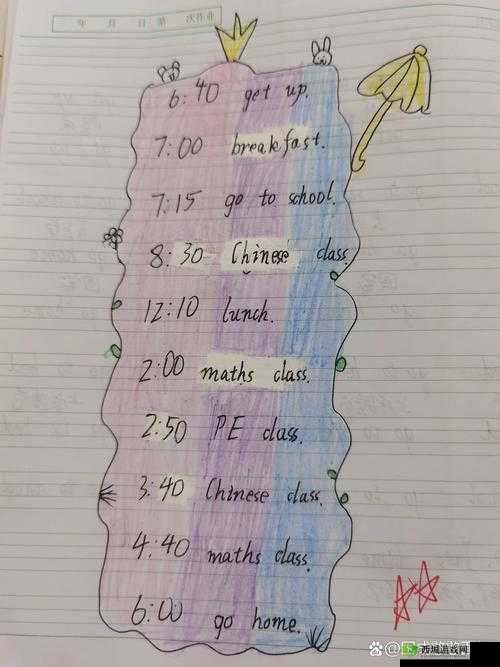 年 月 日 第 次作业
6:40 get up.
7:00 breakfast.
7:15 go to school.
8:30 Chinese class.
12:10 lunch.
2:00 maths class.
2:50 PE class.
3:40 Chinese class.
4:40 maths class.
6:00 go home.
西城游戏网